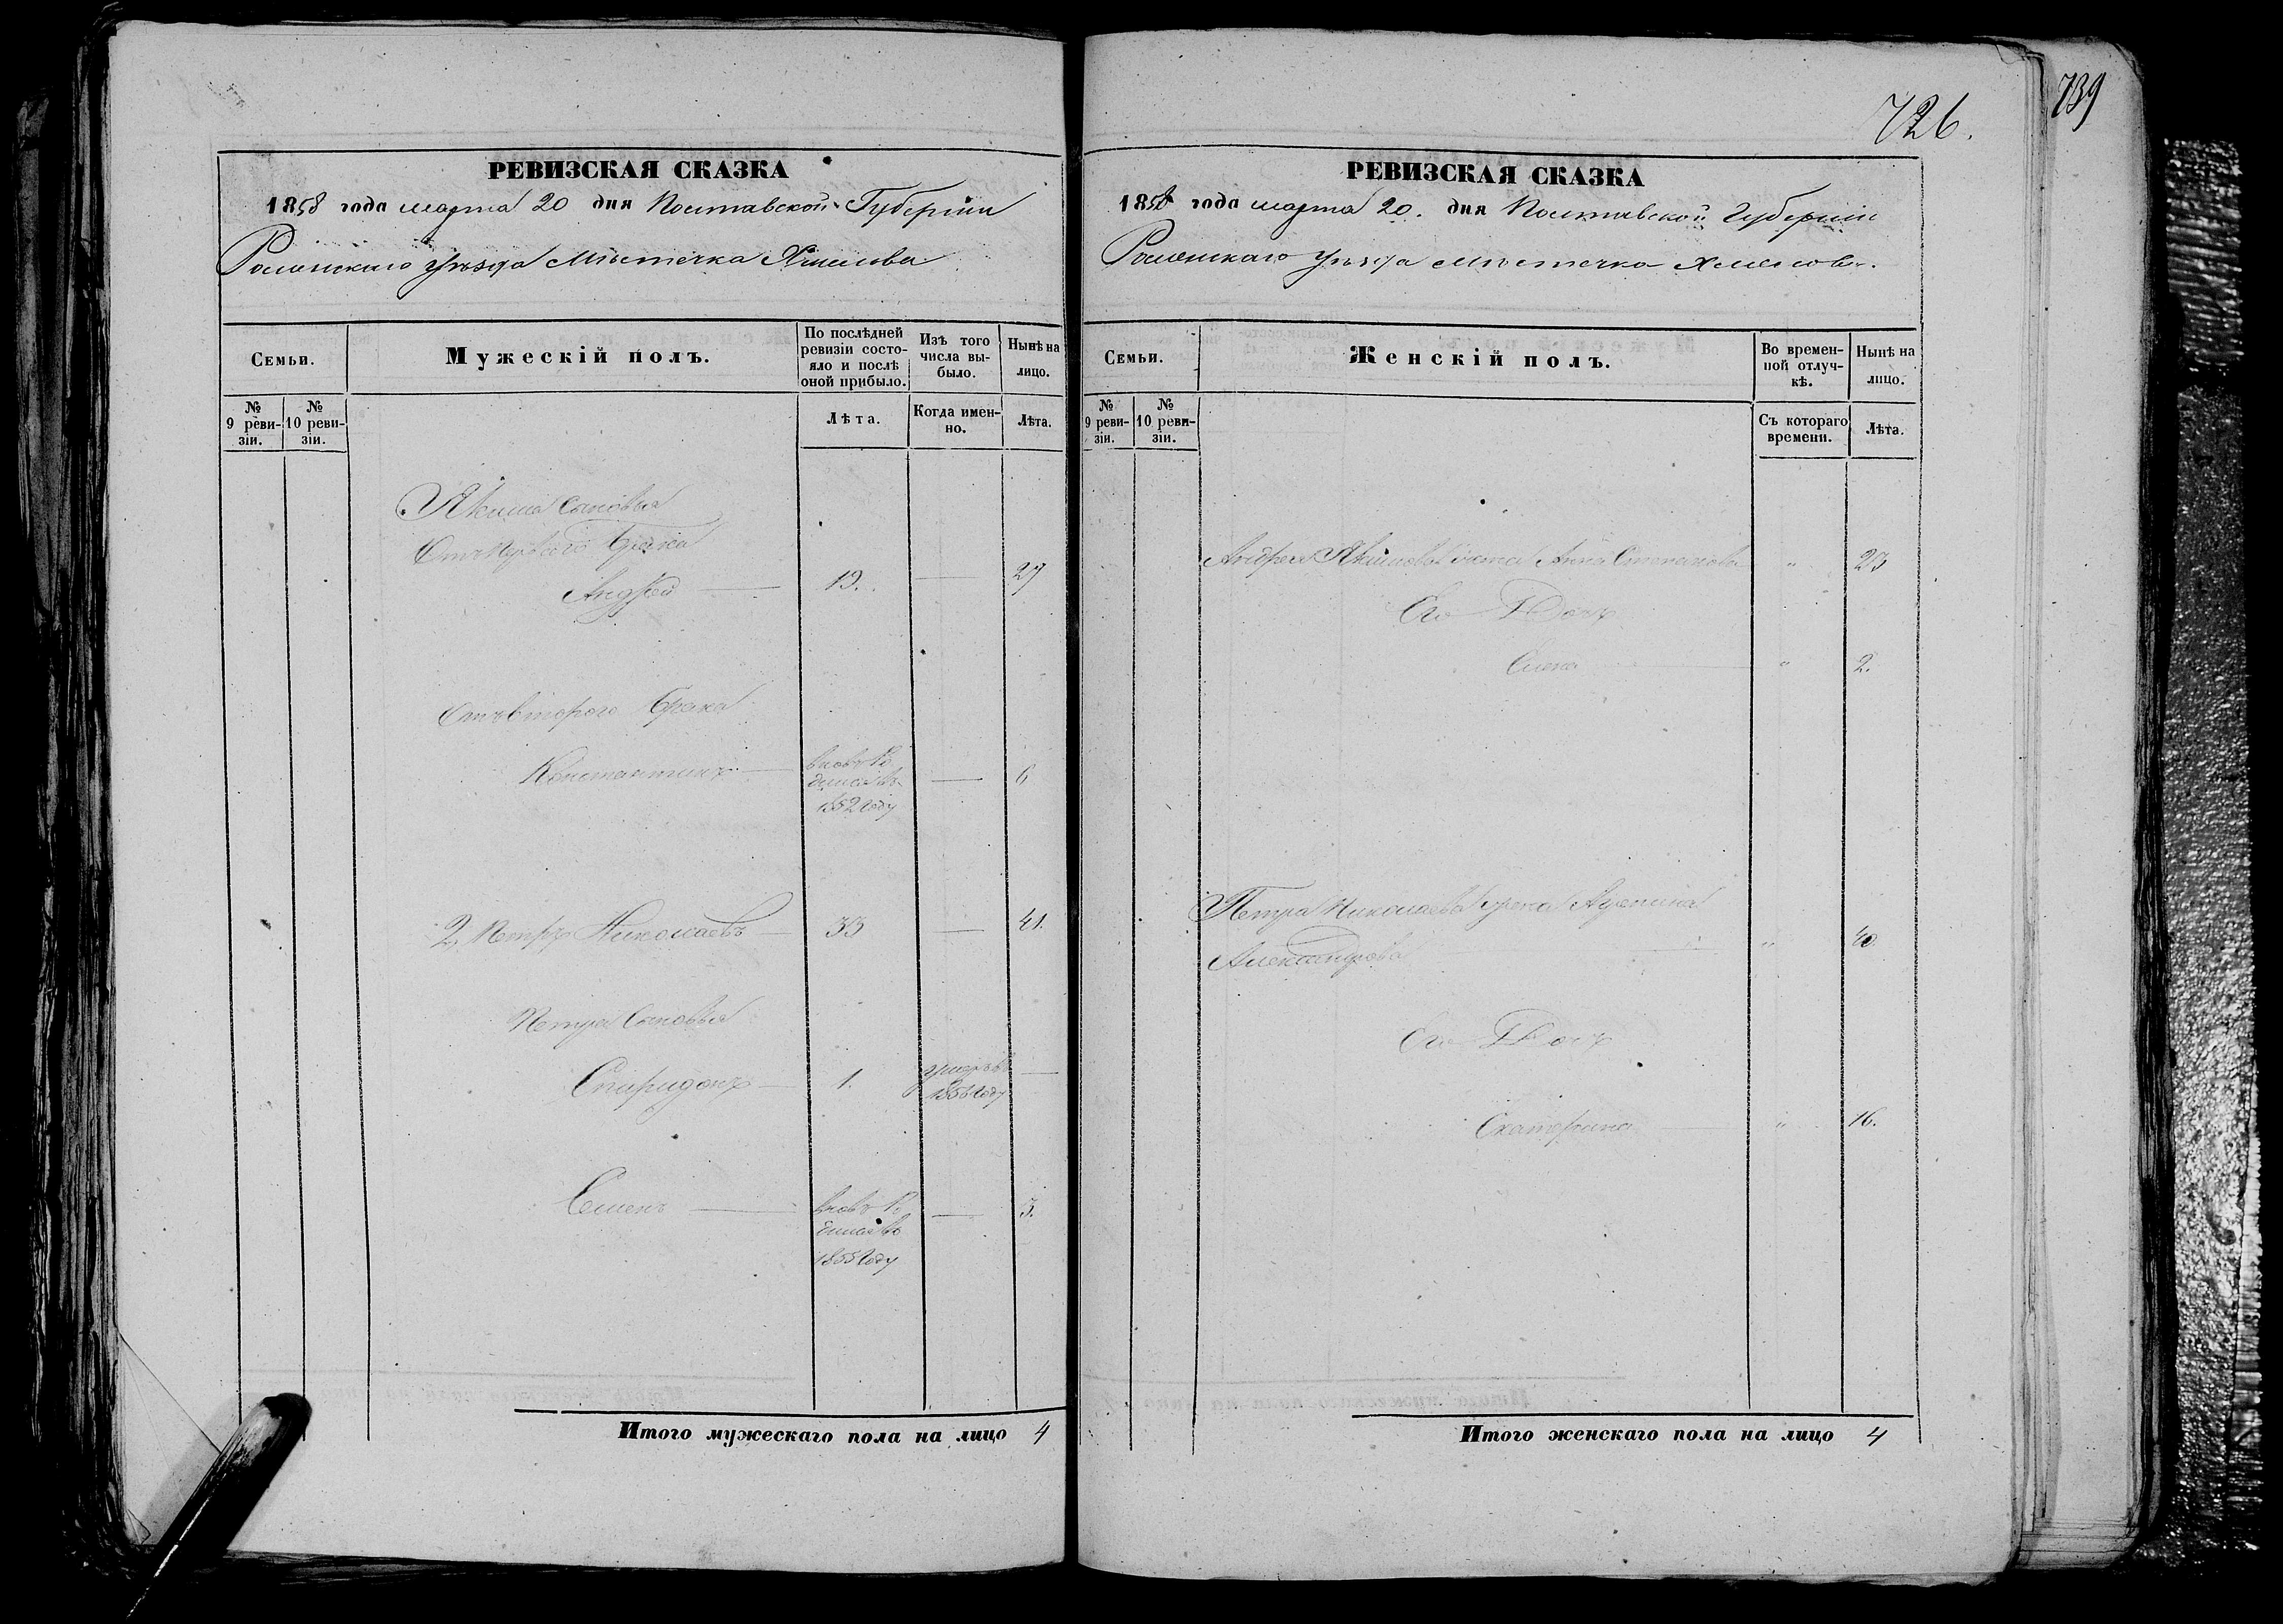 726.
739
РЕВИЗСКАЯ СКАЗКА
1858 года марта 20 дня Полтавской Губерніи
Роменскаго уѣзда Мѣстечка Хмелова
Семьи.
Мужескій полъ.
По послѣдней ревизіи состояло и послѣ оной прибыло.
Изъ того числа выбыло.
Нынѣ на лицо.
№ 9 ревизіи.
№ 10 ревизіи.
Лѣта.
Когда именно.
Лѣта.
Якима Сыновья
Отъ первого брака
Андрей 19. 27
Отъ второго брака
Константинъ
вновь ро
дился въ 6
1852 году
2, Петръ Николаевъ 33 41.
Петра Сыновья
Спиридонъ 1. умеръ въ
Семенъ
вновь ро 3.
дился въ
1855 году
Итого мужескаго пола на лицо 4
РЕВИЗСКАЯ СКАЗКА
1858 года марта 20. дня Полтавской Губерніи
Роменскаго уѣзда Мѣстечка Хмелова.
Семьи.
Женскій полъ.
Во временной отлучкѣ.
Нынѣ на лицо.
№ 9 ревизіи.
№ 10 ревизіи.
Съ котораго времени.
Лѣта.
Андрея Якимова жена Анна Степанова "
Его Дочь
Елена " 2.
Петра Николаева жена
Александрова " 40.
Его Дочь
Екатерина " 16.
Итого женскаго пола на лицо 4